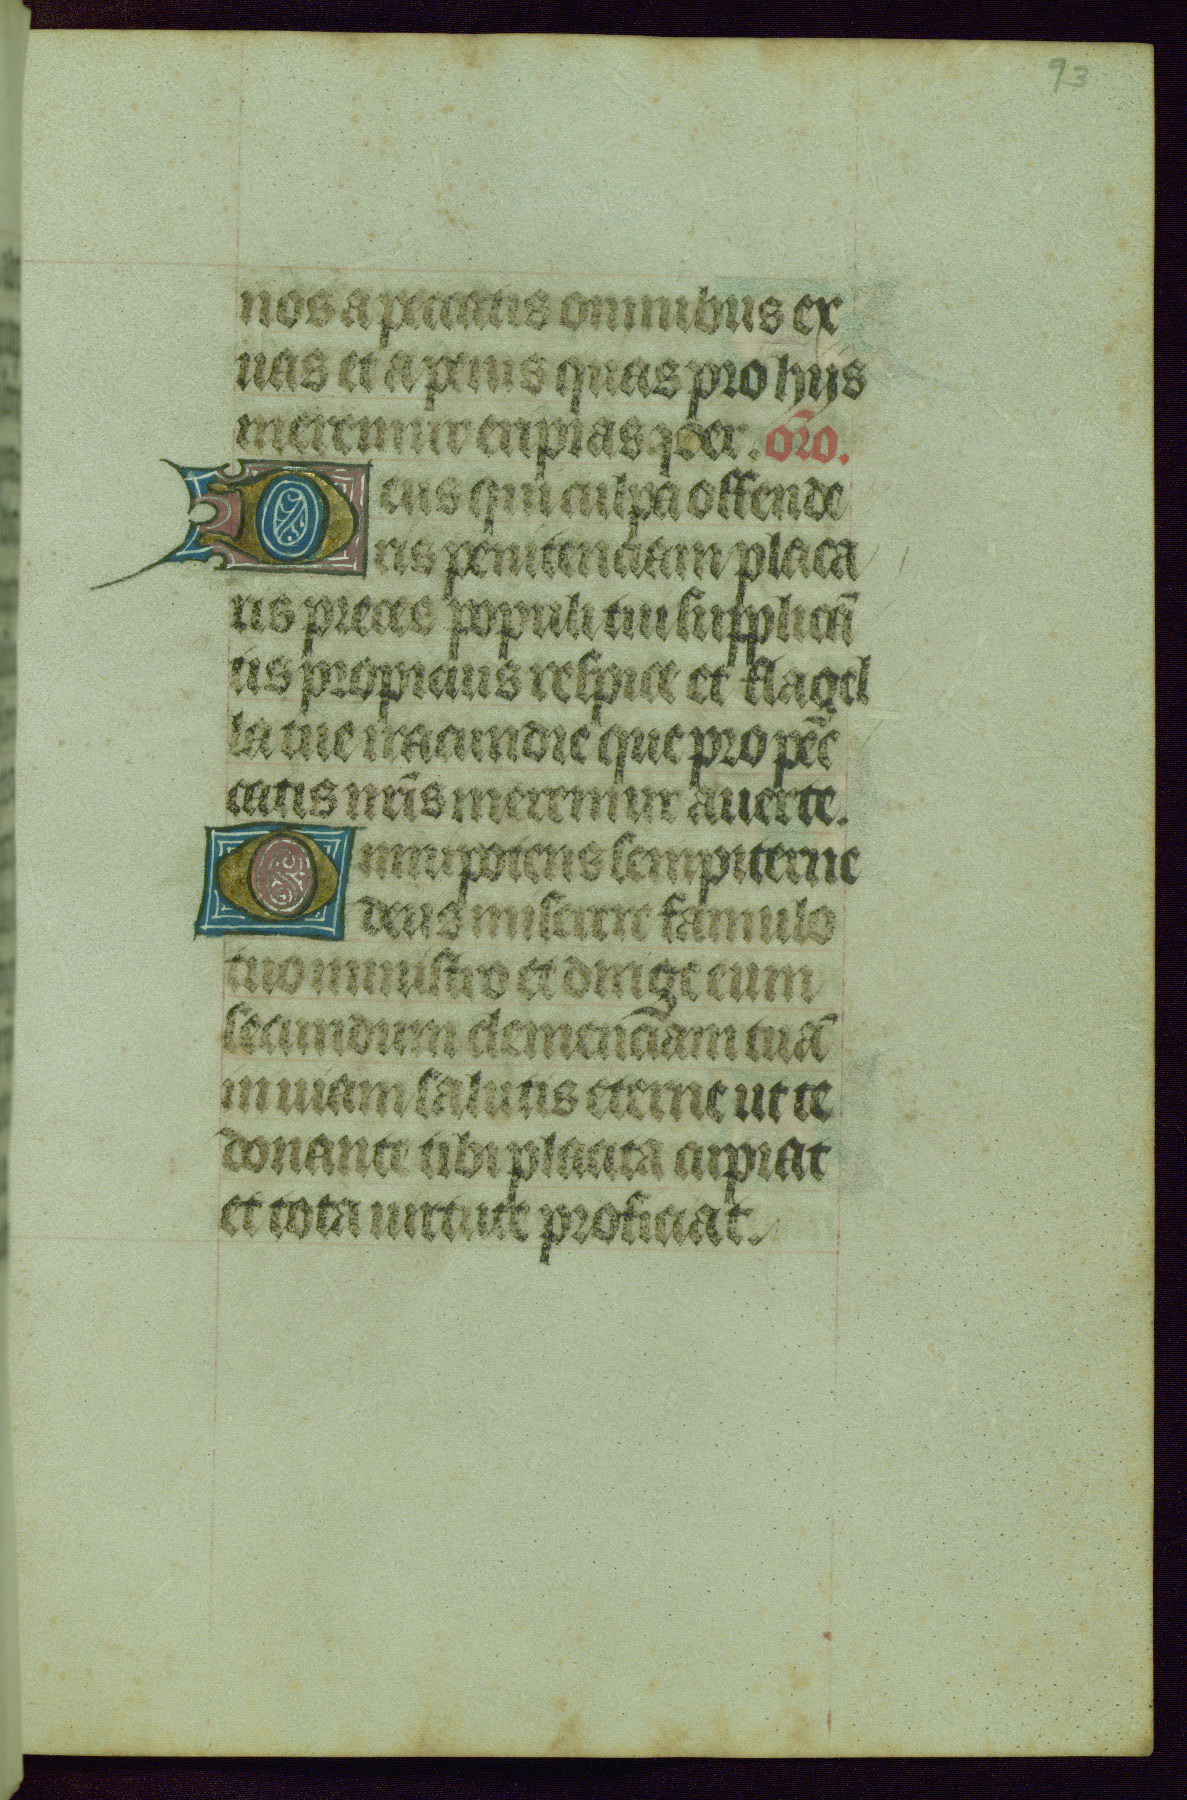 93
nos a peccatis omnibus ex
uas et a penis quas pro hijs
meremur eripias. oro.
Deus qui culpa offende
ris penitenciam placa
ris preces populi tui supplicā
tis propicius respice et flagel
la tue iracundie que pro pec̄
catis nrīs meremur auerte.
Omnipotens sempiterne
deus miserere famulo
tuo ministro et dirige eum
secundum clemenciam tuā
in uiam salutis eterne ut te
donante tibi placita cupiat
et tota uirtute proficiat.